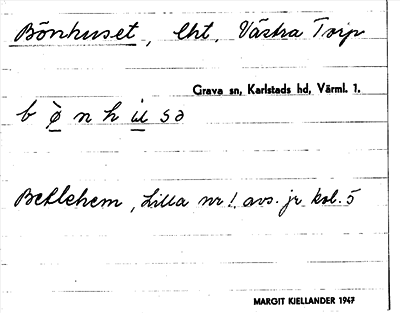 Bönhuset, Cht, Västra Torp
Grava sn, Karlstads hd, Värml. 1.
b ø̀ n h ʉ́ s ə
Betlehem, Lilla nr 1. avs. jr kol. 5
MARGIT KJELLANDER 1947